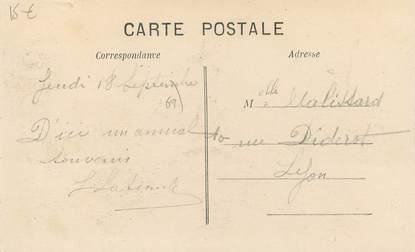 15 €
CARTE POSTALE
Correspondance
Adresse
Jeudi 18 Septembre
D'ici un amical
souvenir
Melle Malissard
rue Diderot
Lyon